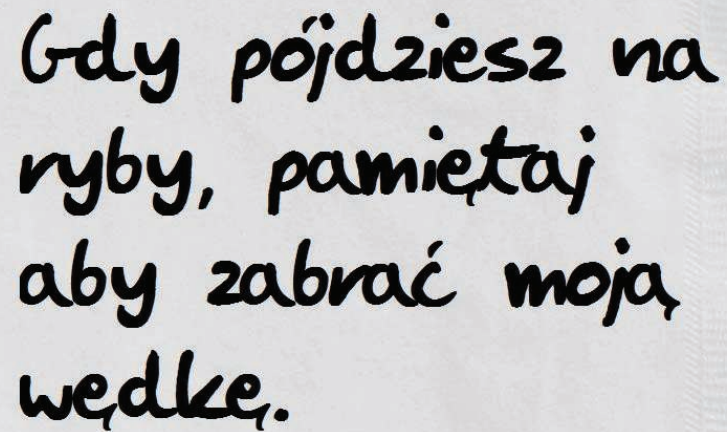 Gdy pójdziesz na
ryby, pamiętaj
aby zabrać moją
wędkę.